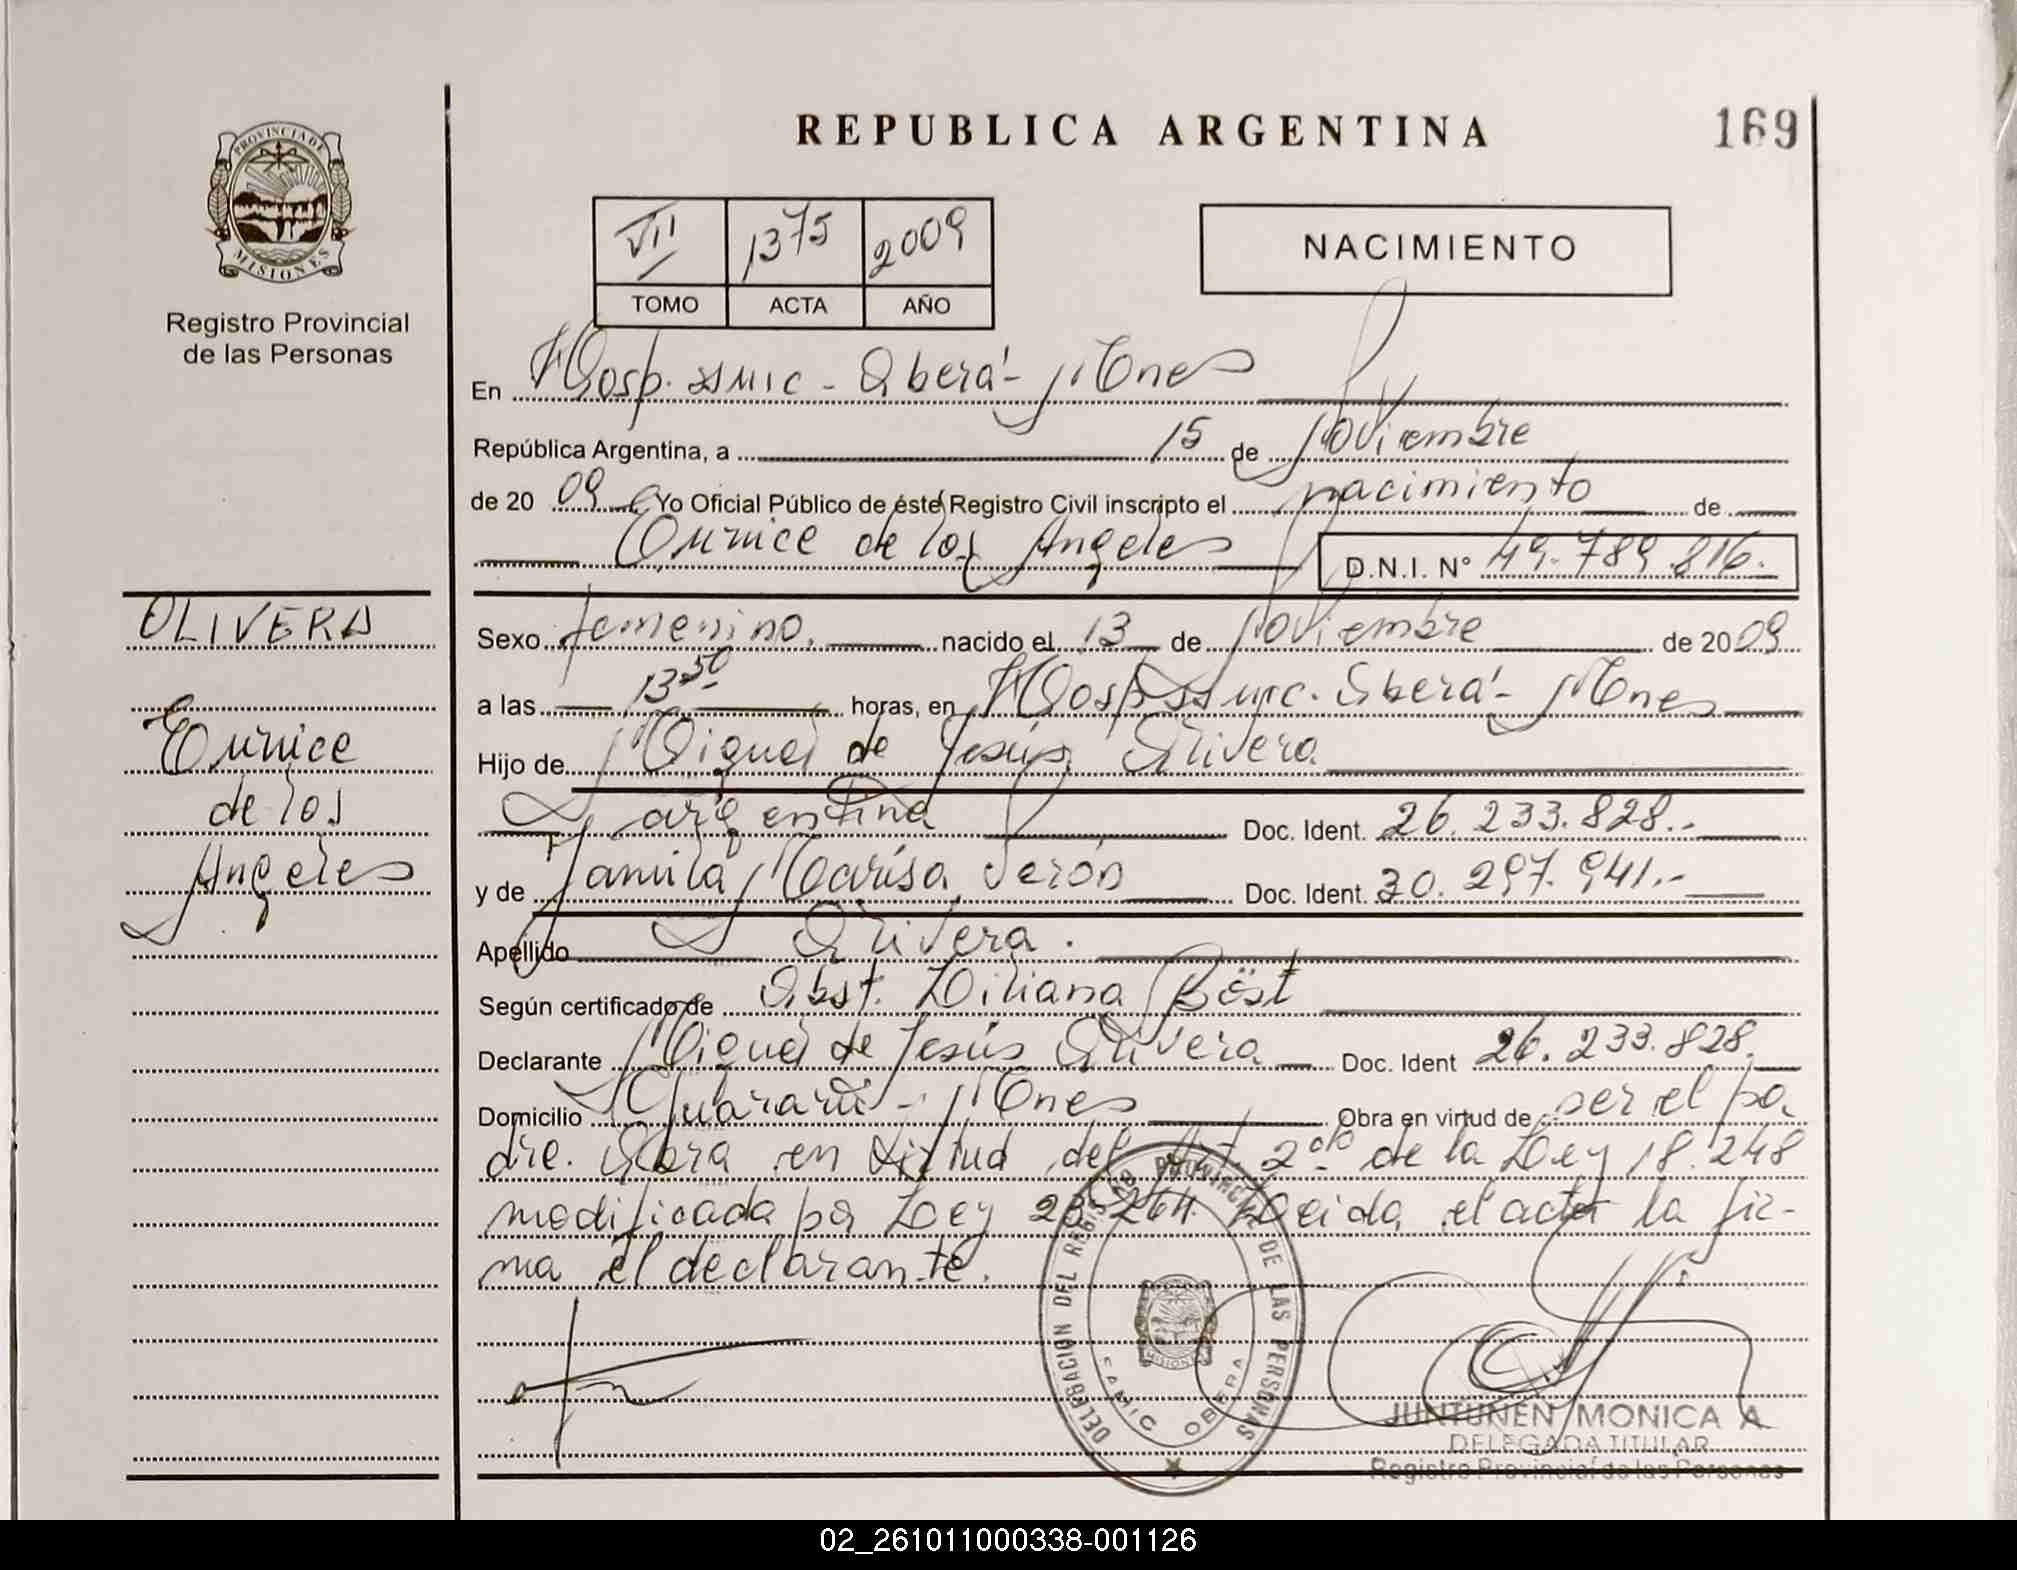 REPUBLICA ARGENTINA
169
PROVINCIA DE
MISIONES
Registro Provincial
de las Personas
VII 1375 2009
TOMO ACTA AÑO
NACIMIENTO
En Hosp. Samic - Oberá - Mnes
República Argentina, a 15 de Noviembre
de 2009 Yo Oficial Público de éste Registro Civil inscripto el nacimiento de
Eunice de los Angeles D.N.I. N° 49.789.816.
OLIVERA
Eunice
de los
Angeles
Sexo femenino. nacido el 13 de Noviembre de 2009
a las 13 50 horas, en Hosp. Samic. Oberá - Mnes
Hijo de Miguel de Jesús Olivera
argentina Doc. Ident. 26.233.828.-
y de Marisa Doc. Ident. 30.297.941.-
Apellido Olivera.
Según certificado de Obst. Liliana Böst
Declarante Miguel de Jesús Olivera Doc. Ident 26.233.828.
Domicilio Guaraní - Mnes Obra en virtud de ser el pa
dre. Obra en virtud del Art 2do de la Ley 18.248
modificada por Ley 23.264. Leida el acta la fir-
ma el declarante.
DELEGACION DEL REGISTRO PROVINCIAL DE LAS PERSONAS
SAMIC OBERA
MISIONES
JUNTUNEN MONICA A
DELEGADA TITULAR
Registro Provincial de las Personas
02_261011000338-001126